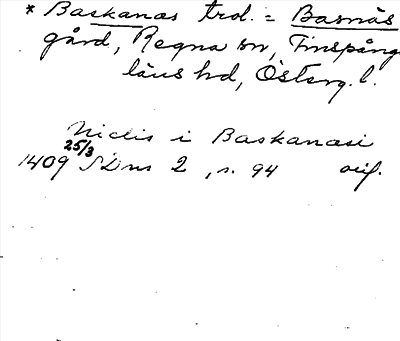 * Baskanas trol. = Basnäs
gård, Regna sn, Finspång
läns hd, Österg. l.
Niclis i Baskanasi
25/3
1409 SDns 2, s. 94 orig.